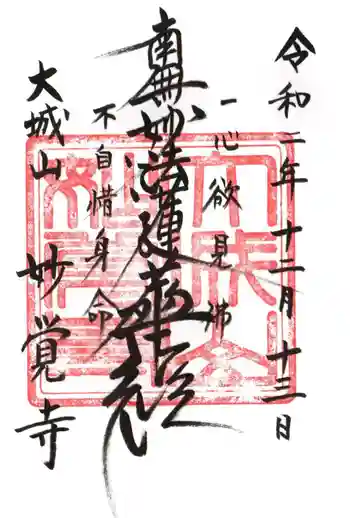 令和二年十二月十三日
一心欲見佛
南無妙法蓮華経
不自惜身命
大城山
妙覚寺